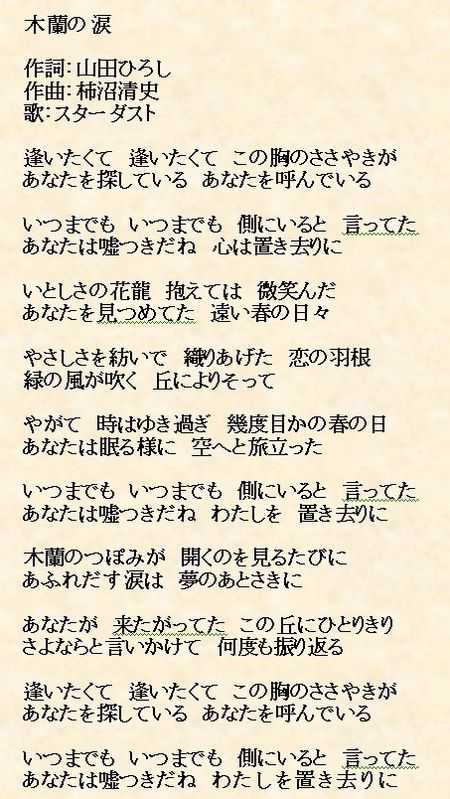 木蘭の涙
作詞：山田ひろし
作曲：柿沼清史
歌：スターダスト
逢いたくて　逢いたくて　この胸のささやきが
あなたを探している　あなたを呼んでいる
いつまでも　いつまでも　側にいると　言ってた
あなたは嘘つきだね　心は置き去りに
いとしさの花龍　抱えては　微笑んだ
あなたを見つめてた　遠い春の日々
やさしさを紡いで　織りあげた　恋の羽根
緑の風が吹く　丘によりそって
やがて　時はゆき過ぎ　幾度目かの春の日
あなたは眠る様に　空へと旅立った
いつまでも　いつまでも　側にいると　言ってた
あなたは嘘つきだね　わたしを　置き去りに
木蘭のつぽみが　開くのを見るたびに
あふれだす涙は　夢のあとさきに
あなたが　来たがってた　この丘にひとりきり
さよならと言いかけて　何度も振り返る
逢いたくて　逢いたくて　この胸のささやきが
あなたを探している　あなたを呼んでいる
いつまでも　いつまでも　側にいると　言ってた
あなたは嘘つきだね　わたしを置き去りに